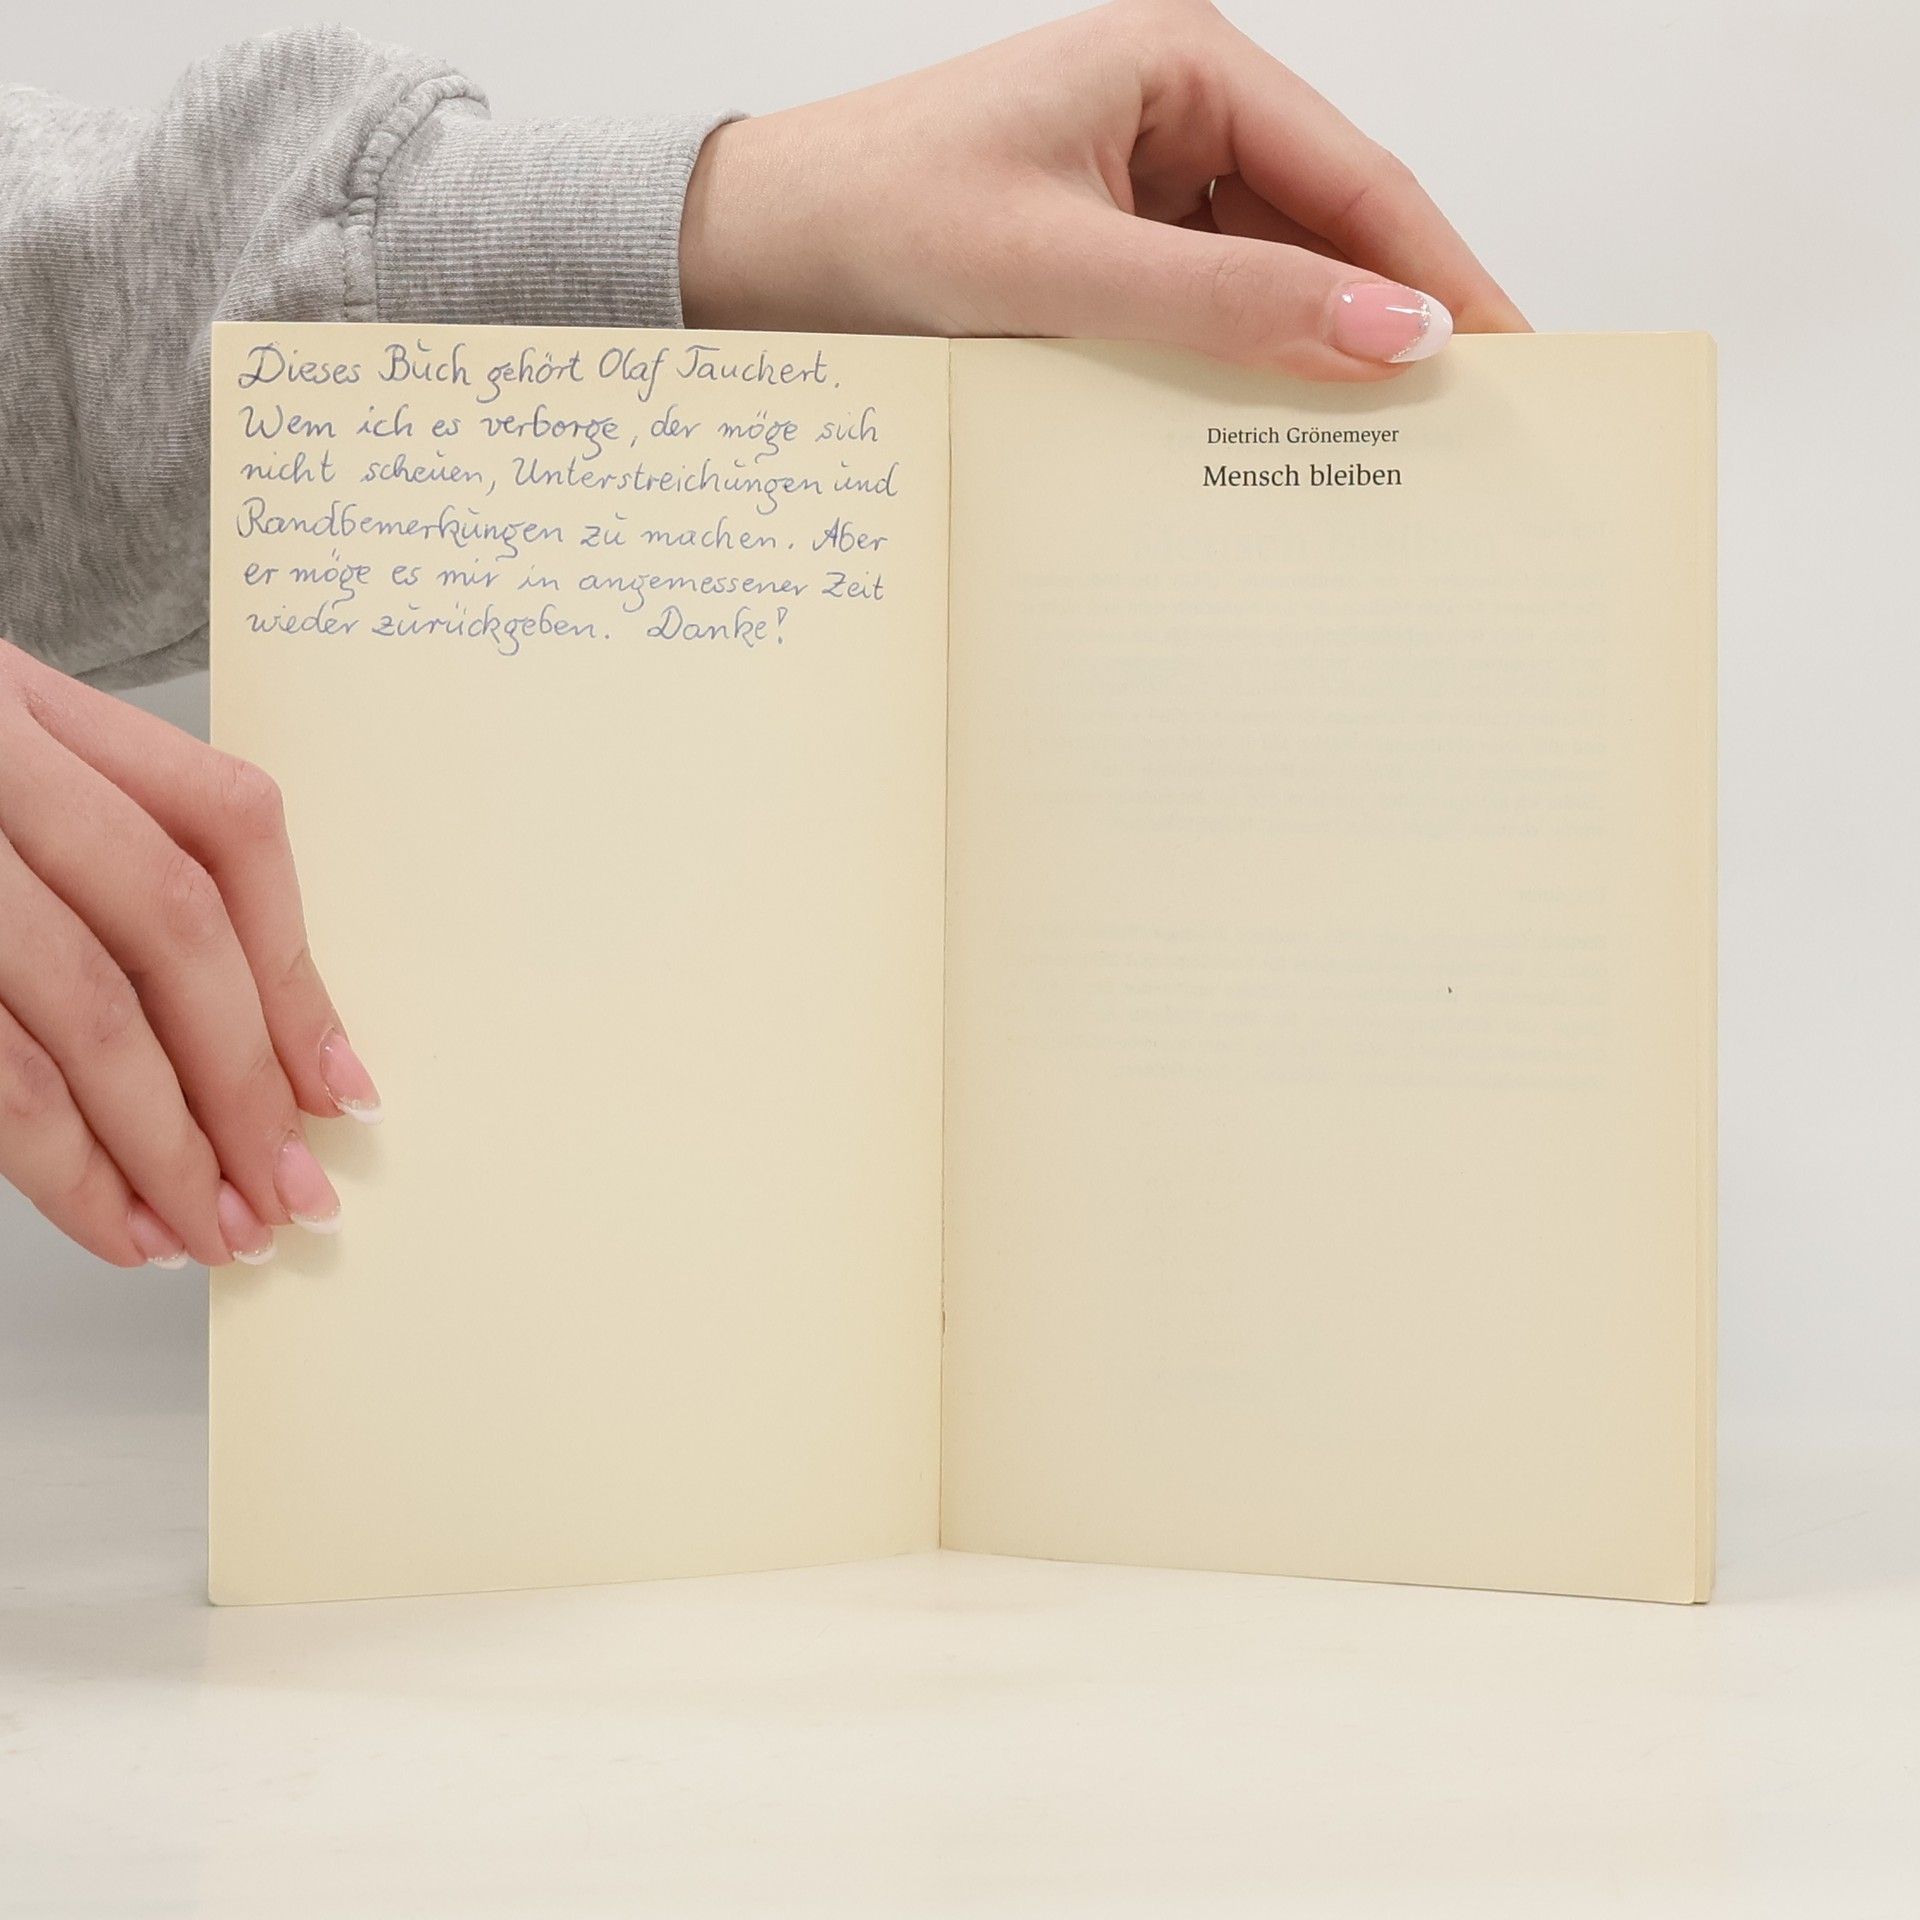 Dieses Buch gehört Olaf Tauchert.
Wem ich es verborge, der möge sich
nicht scheuen, Unterstreichungen und
Randbemerkungen zu machen. Aber
er möge es mir in angemessener Zeit
wieder zurückgeben. Danke!
Dietrich Grönemeyer
Mensch bleiben